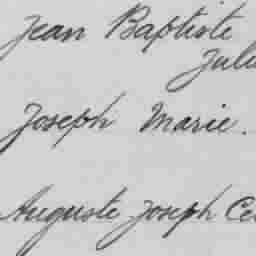 Jean Baptiste
Joseph Marie.
Auguste Joseph